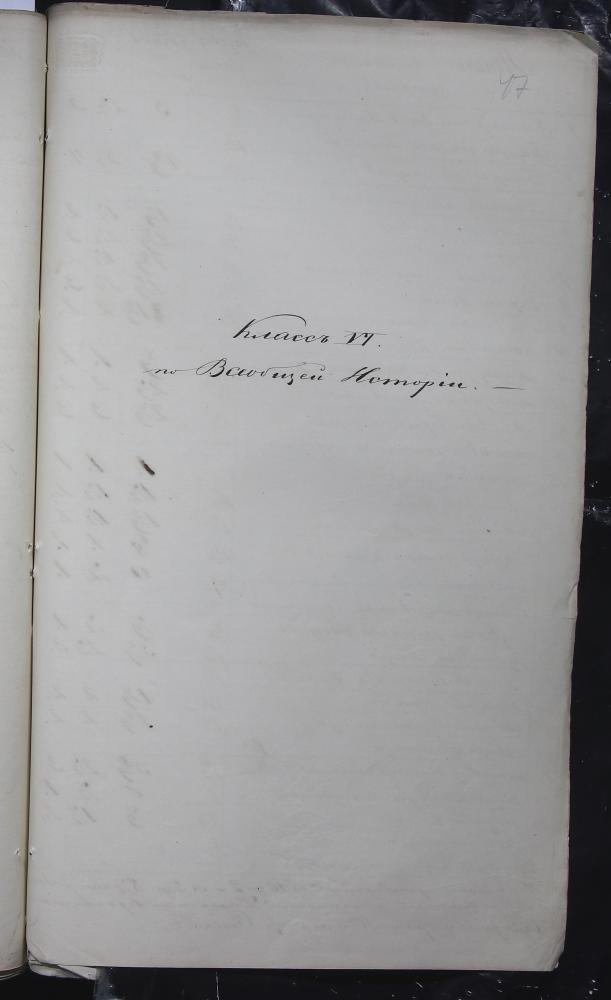 17
Классъ VI.
по Всеобщей Исторіи. —